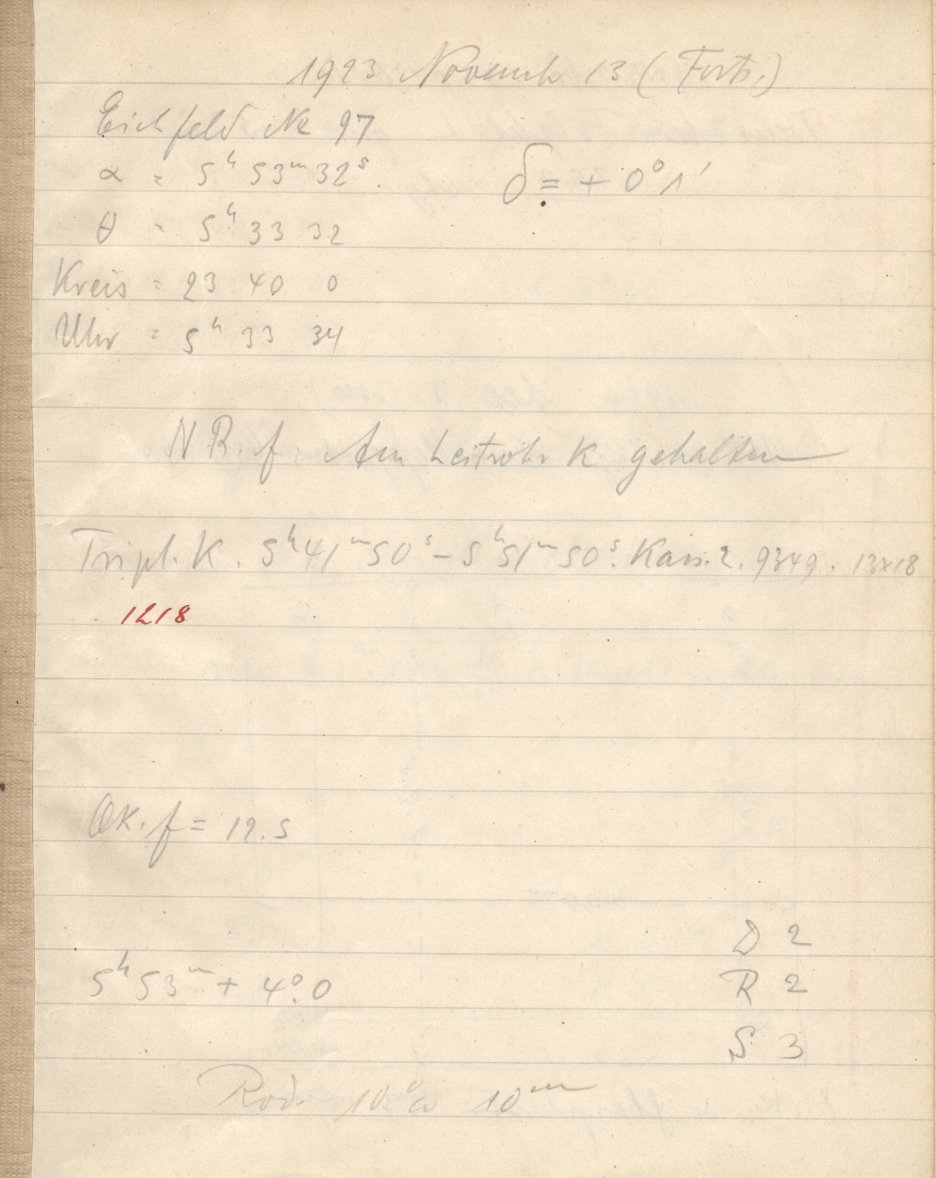 1923 Novemb 13 (Forts.)
Eichfeld No 97
α = 5h 53m 32s. δ = + 0° 1'
θ = 5h 33 32
Kreis = 23 40 0
Uhr = 5h 33 34
N R. f. Am Leitrohr K gehalten
Tripl. K. 5h 41m 50s – 5h 51m 50s. Kass. 2. 9349. 13x18
1218
Ok. f = 12.5
D 2
5h 53m + 4°.0 R 2
S 3
10m